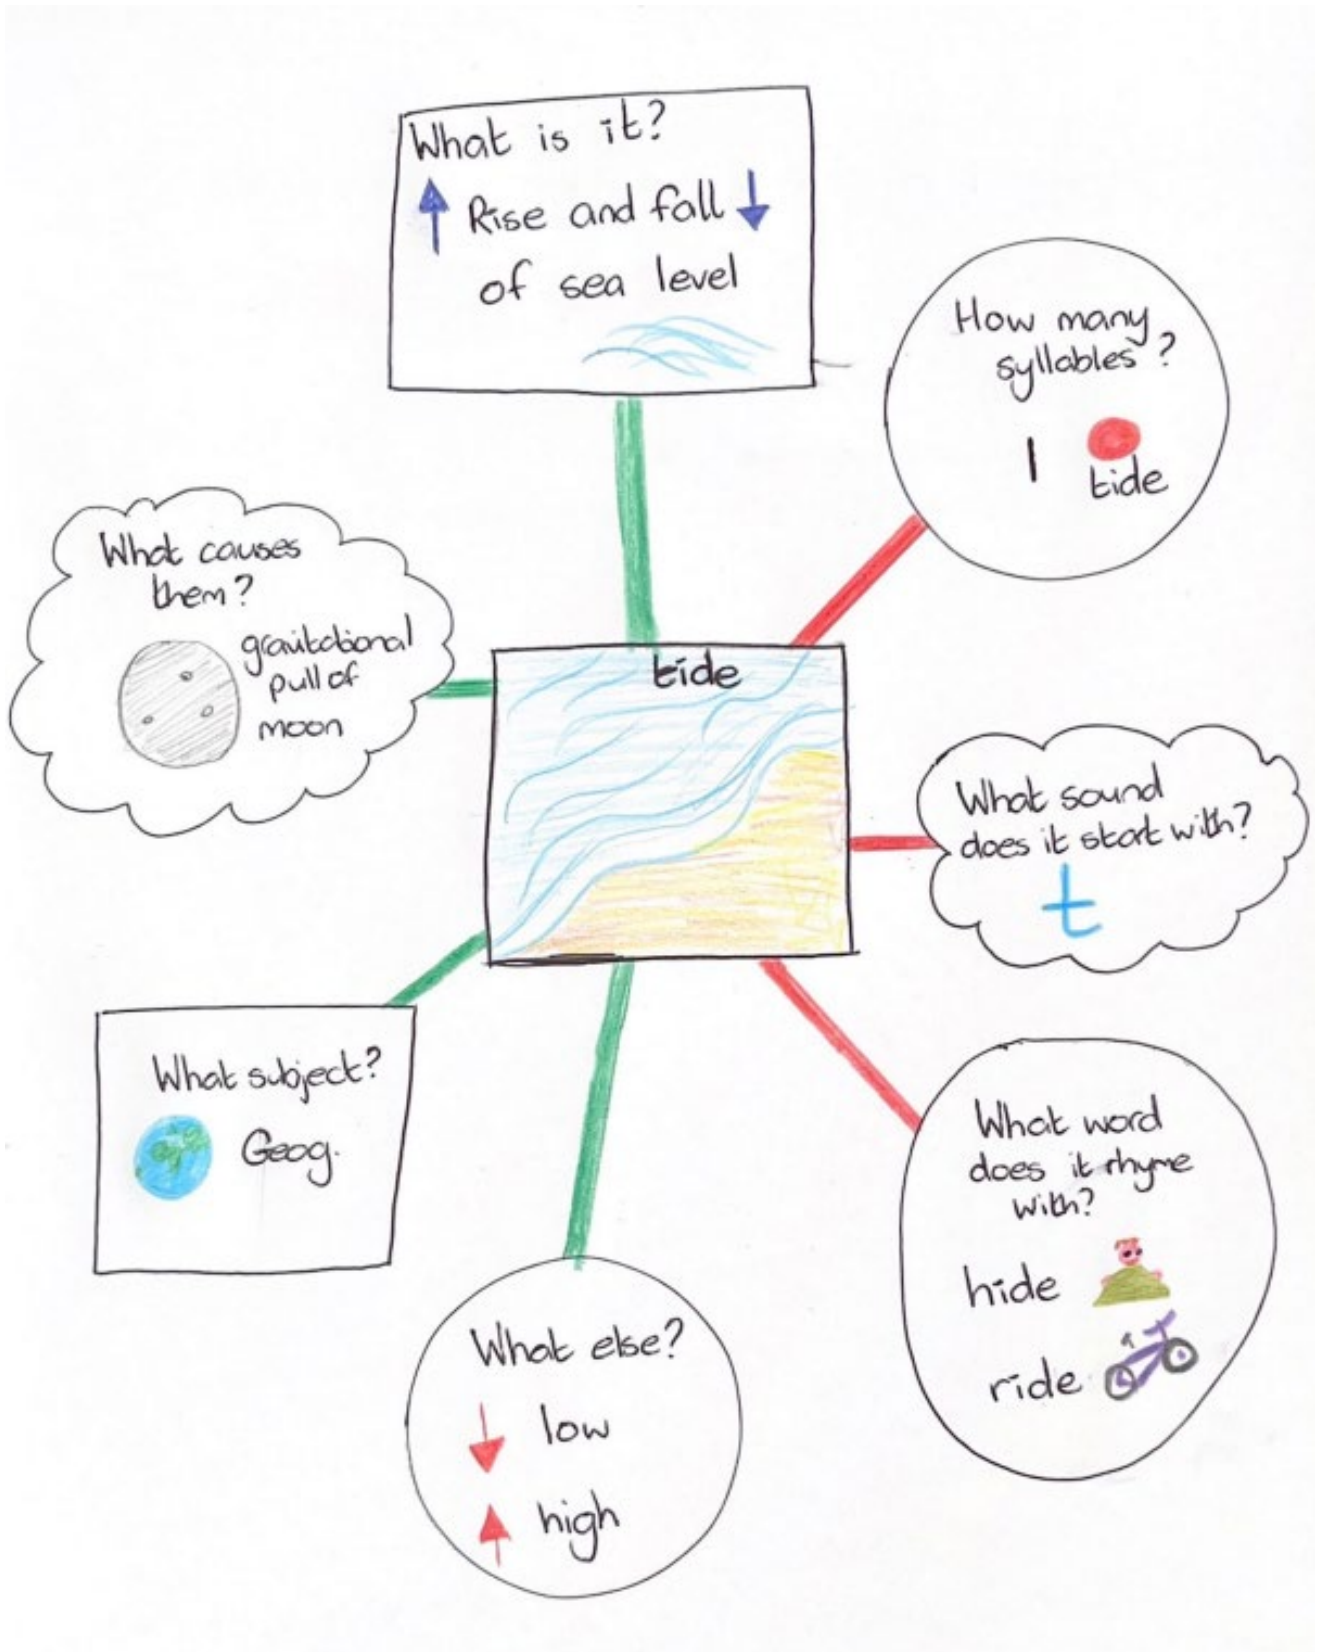 What is it?
Rise and fall
of sea level
How many
syllables?
1
tide
What causes
them?
gravitational
pull of
moon
tide
What sound
does it start with?
t
What subject?
Geog.
What word
does it rhyme
with?
hide
ride
What else?
low
high